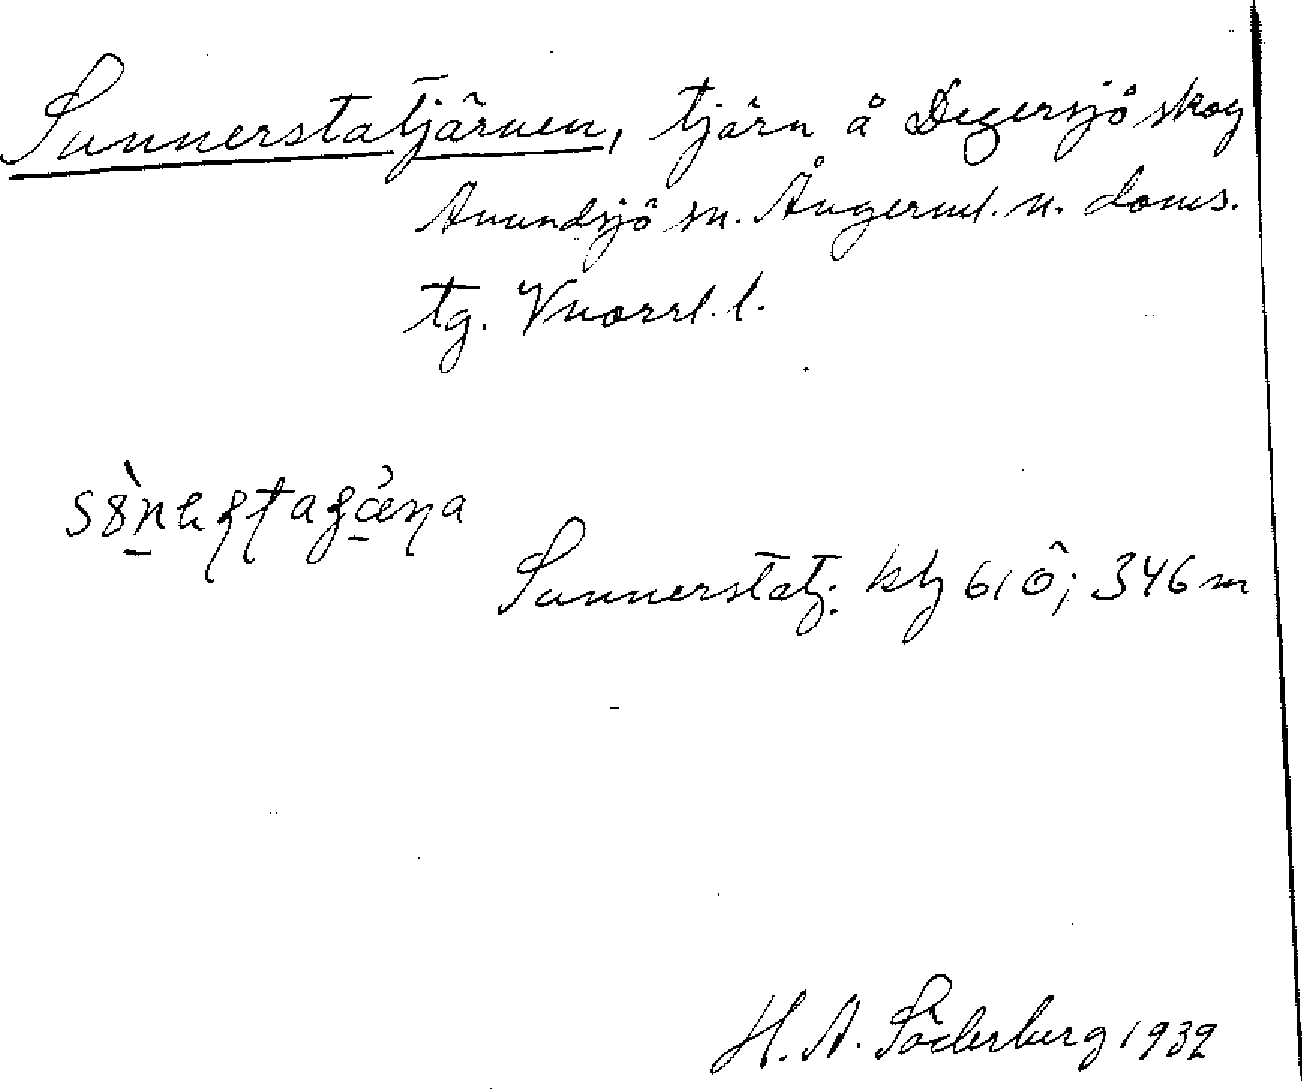 Sunnerstatjärnen, tjärn å Degersjö skog
Anundsjö sn. Ångerml. n. doms.
tg. Vnorrl. l.
Sunnerstatj. kbl 61 ö; 346 m
H. A. Söderberg 1932